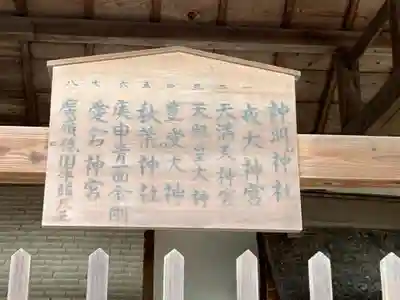 神明神社
一 我大神宮
二 天満天神宮
三 天照皇大神
四 豊受大神
五 秋葉神社
六 庚申青面金剛
七 愛宕神宮
八